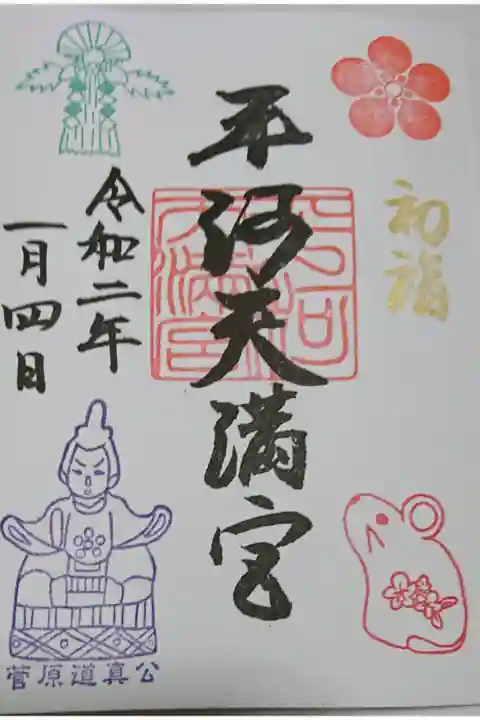 初福
平河天満宮
令和二年
一月四日
菅原道真公